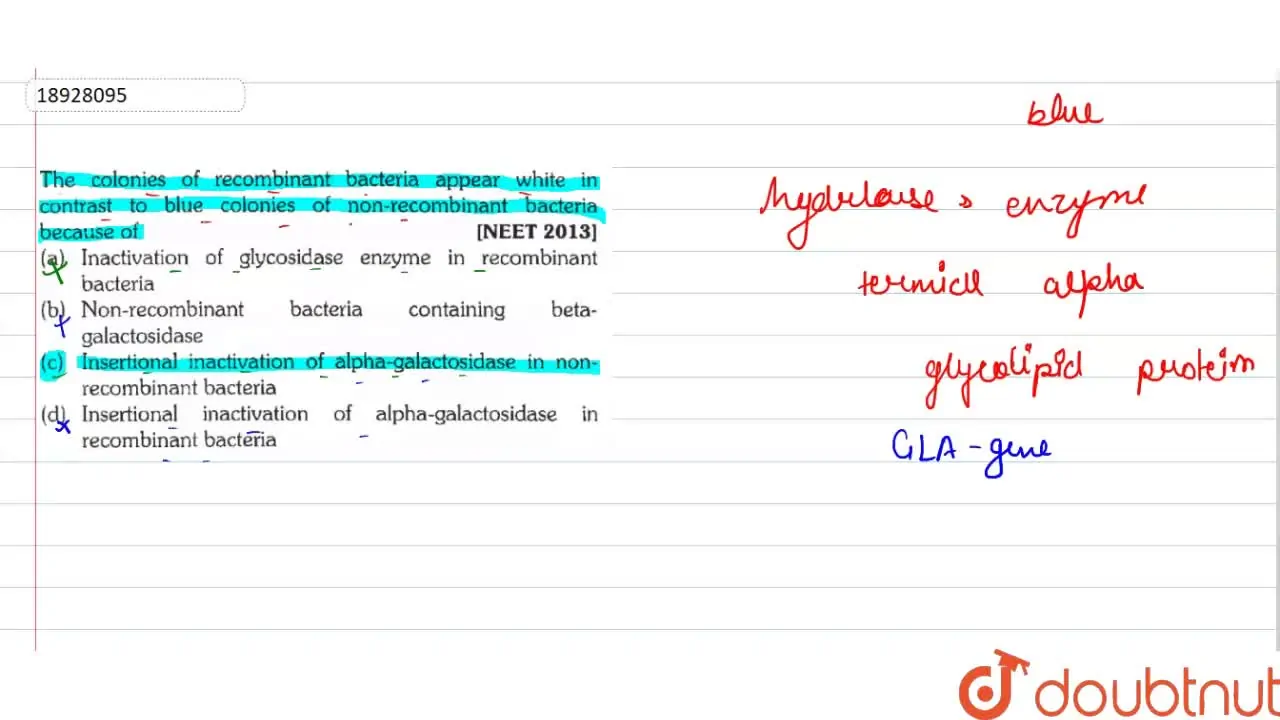 18928095
The colonies of recombinant bacteria appear white in
contrast to blue colonies of non-recombinant bacteria
because of [NEET 2013]
(a) Inactivation of glycosidase enzyme in recombinant
bacteria
(b) Non-recombinant bacteria containing beta-
galactosidase
(c) Insertional inactivation of alpha-galactosidase in non-
recombinant bacteria
(d) Insertional inactivation of alpha-galactosidase in
recombinant bacteria
blue
enzyme
alpha
glycolipid protein
GLA-gene
doubtnut